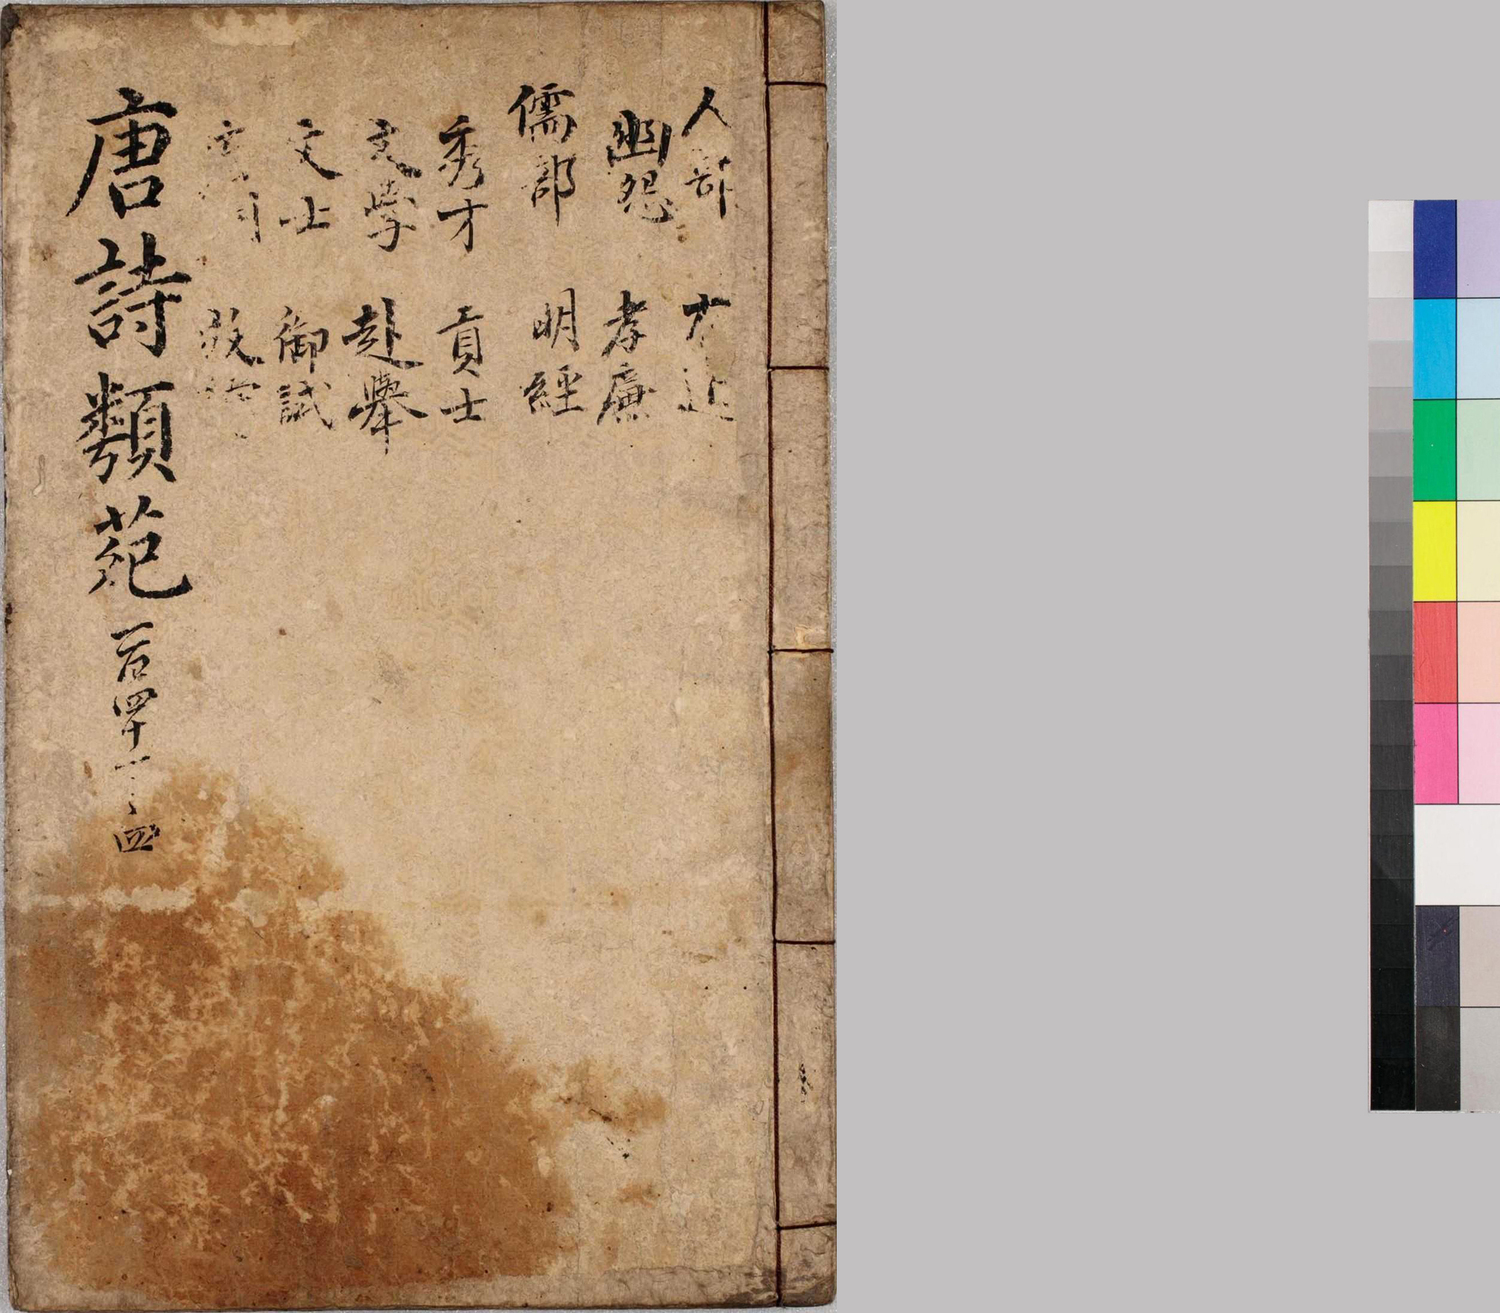 人部
幽怨 孝廉
儒部 明經
秀才 貢士
文學 赴舉
文士 御試
唐詩類苑 一百四十一之四